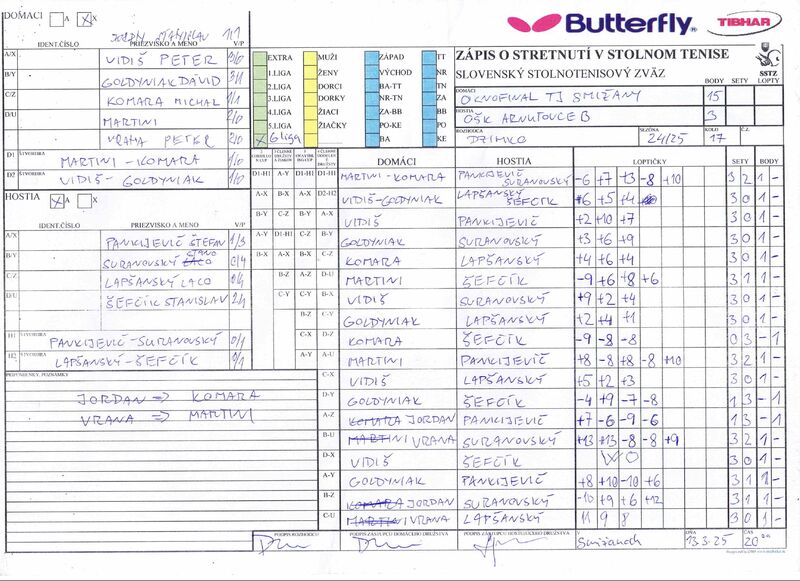 DOMÁCI A X
JORDAN STANISLAV 1/1
Butterfly TIBHAR
IDENT.ČÍSLO PRIEZVISKO A MENO V/P
A/X VIDIŠ PETER
B/Y GOLDYNIAK DÁVID 3/1
C/Z KOMARA MICHAL 1/1
D/U MARTINI 2/0
VRANA PETER 2/0
D1 ŠTVORHRA MARTINI - KOMARA 1/0
D2 ŠTVORHRA VIDIŠ - GOLDYNIAK 1/0
EXTRA MUŽI ZÁPAD TT
1.LIGA ŽENY VÝCHOD NR
2.LIGA DORCI BA-TT TN
3.LIGA DORKY NR-TN ZA
4.LIGA ŽIACI ZA-BB BB
5.LIGA ŽIAČKY PO-KE PO
6 liga BA KE
ZÁPIS O STRETNUTÍ V STOLNOM TENISE
SLOVENSKÝ STOLNOTENISOVÝ ZVÄZ SSTZ
BODY SETY LOPTY
DOMÁCI OKNOFINAL TJ SMIŽANY 15
HOSTIA OŠK ARNUTOVCE B 3
ROZHODCA DZIMKO SEZÓNA 24/25 KOLO 17 Č.Z.
HOSTIA A X
IDENT.ČÍSLO PRIEZVISKO A MENO V/P
A/X PANKIJEVIČ ŠTEFAN 1/3
B/Y SURANOVSKÝ JANO 0/4
C/Z LAPŠANSKÝ LACO 0/4
D/U ŠEFČÍK STANISLAV 2/4
H1 ŠTVORHRA PANKIJEVIČ-SURANOVSKÝ 0/1
H2 ŠTVORHRA LAPŠANSKÝ-ŠEFČÍK 0/1
PRIPOMIENKY, POZNÁMKY
JORDAN => KOMARA
VRANA => MARTINI
DOMÁCI HOSTIA LOPTIČKY SETY BODY
D1-H1 A-Y D1-H1 D1-H1 MARTINI - KOMARA PANKIJEVIČ SURANOVSKÝ -6 +7 +3 -8 +10 3 2 1 -
A-X B-X A-X D2-H2 VIDIŠ-GOLDYNIAK LAPŠANSKÝ ŠEFČÍK +6 +5 +4 3 0 1 -
B-Y C-Z B-Y A-X VIDIŠ PANKIJEVIČ +2 +10 +7 3 0 1 -
A-Y D1-H1 C-Z B-Y GOLDYNIAK SURANOVSKÝ +3 +6 +9 3 0 1 -
B-X A-X D-U C-Z KOMARA LAPŠANSKÝ +4 +6 +4 3 0 1 -
B-Z A-Z D-U MARTINI ŠEFČÍK -9 +6 +8 +6 3 1 1 -
C-Y B-X A-Y VIDIŠ SURANOVSKÝ +9 +2 +4 3 0 1 -
B-Z GOLDYNIAK LAPŠANSKÝ +2 +4 +1 3 0 1 -
C-X KOMARA ŠEFČÍK -9 -8 -8 0 3 - 1
A-Y MARTINI PANKIJEVIČ +8 -8 +8 -8 +10 3 2 1 -
C-X VIDIŠ LAPŠANSKÝ +5 +2 +3 3 0 1 -
D-Y GOLDYNIAK ŠEFČÍK -4 +9 -7 -8 1 3 - 1
A-Z KOMARA JORDAN PANKIJEVIČ +7 -6 -9 -6 1 3 - 1
B-U MARTINI VRANA SURANOVSKÝ +13 +13 -8 -8 +9 3 2 1 -
D-X VIDIŠ ŠEFČÍK WO 3 0 1 -
A-Y GOLDYNIAK PANKIJEVIČ +8 +10 -10 +6 3 1 1 -
B-Z KOMARA JORDAN SURANOVSKÝ -10 +9 +6 +12 3 1 1 -
C-U MARTINI VRANA LAPŠANSKÝ 11 9 8 3 0 1 -
PODPIS ROZHODCU PODPIS ZÁSTUPCU DOMÁCEHO DRUŽSTVA PODPIS ZÁSTUPCU HOSŤUJÚCEHO DRUŽSTVA V Smižanoch DŇA 13.3.25 ČAS 20